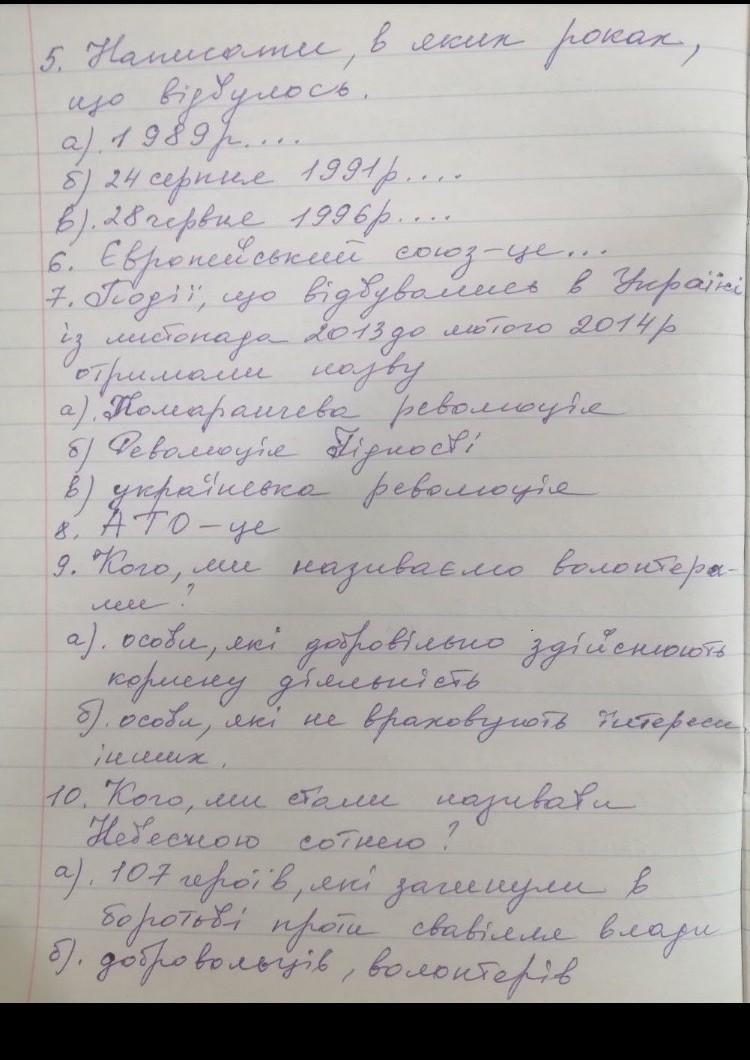 5. Написати, в яких роках,
що відбулось.
а). 1989р....
б) 24 серпня 1991р....
в). 28 червня 1996р....
6. Європейський союз-це...
7. Події, що відбувались в Україні
із листопада 2013 до лютого 2014р
отримали назву
а). Помаранчева революція
б) Революція Гідності
в) українська революція
8. АТО-це
9. Кого, ми називаємо волонтера-
ми?
а). особи, які добровільно здійснюють
корисну діяльність
б). особи, які не враховують інтереси
інших.
10. Кого, ми стали називати
Небесною сотнею?
а). 107 героїв, які загинули в
боротьбі проти свавілля влади
б). добровольців, волонтерів